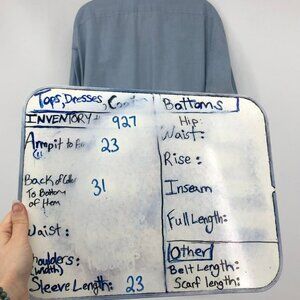 Tops, Dresses,
INVENTORY # 927
Armpit to 23
Back of
To Bottom 31
of Hem
Waist:
Shoulders:
(width)
Sleeve Length: 23
Bottoms
Hip:
Waist:
Rise:
Inseam
Full Length:
Other
Belt Length:
Scarf length: